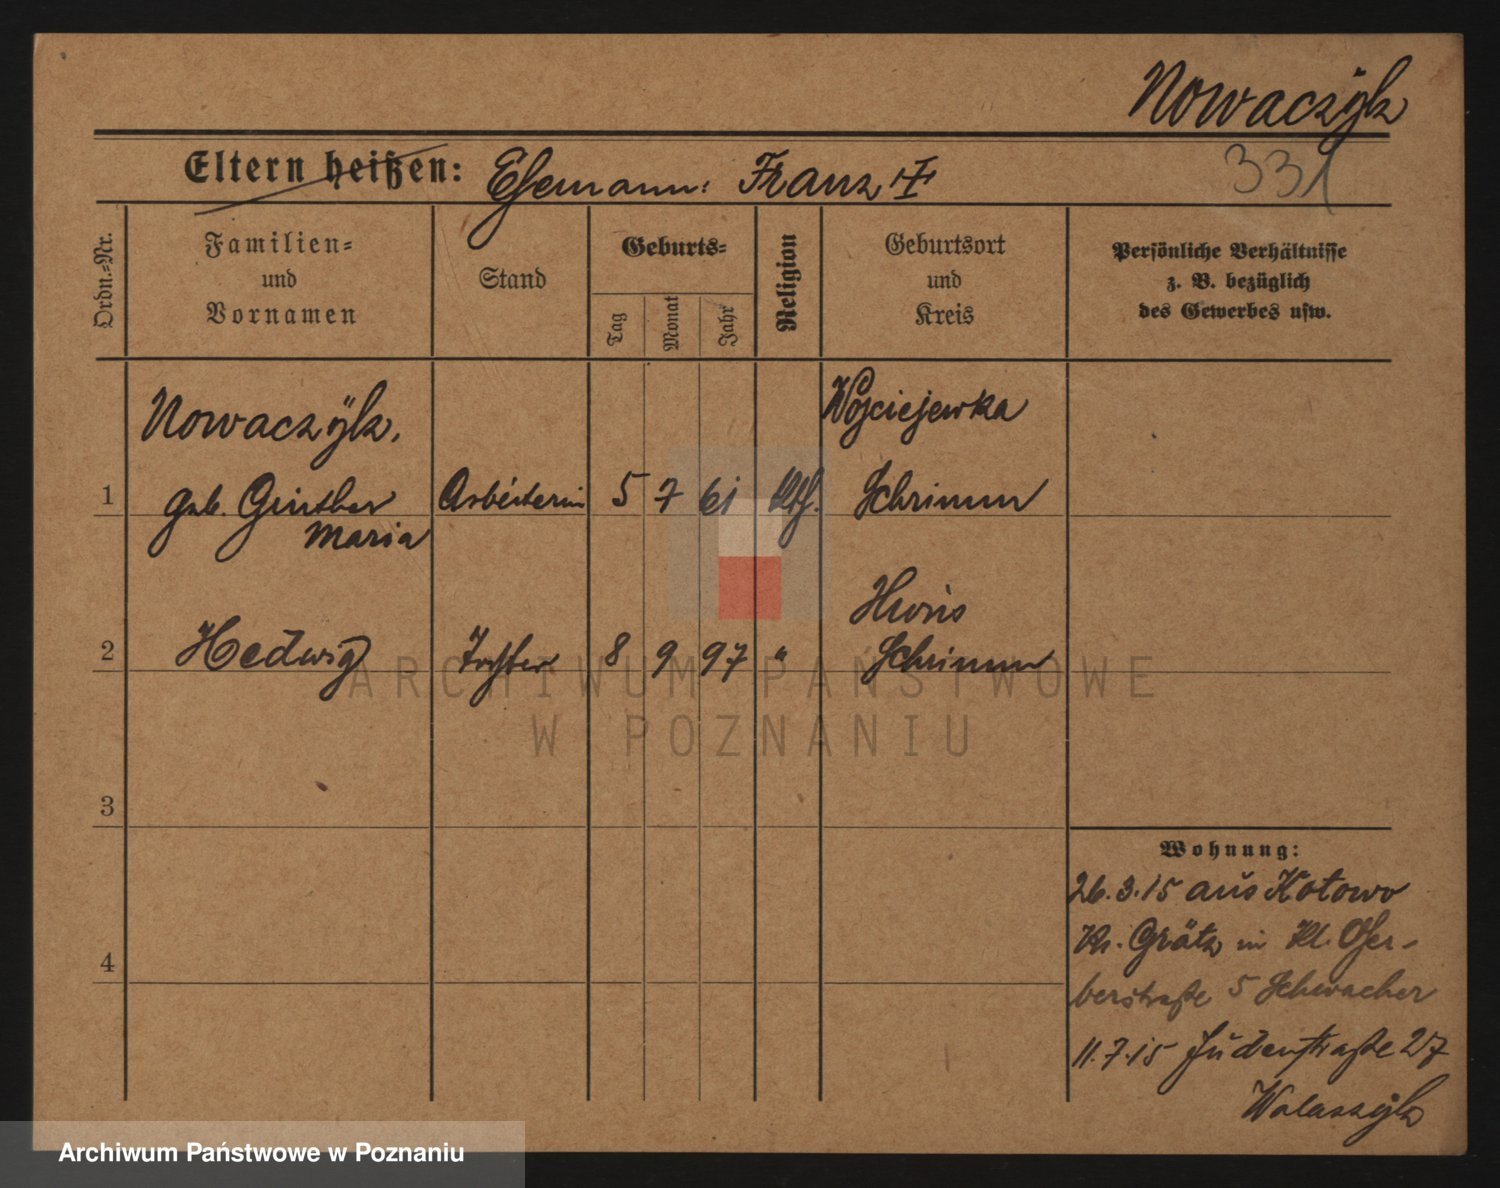 Nowaczÿk
331
Eltern heißen: Ehemann: Franz
Ordn.-Nr.
Familien-
und
Vornamen
Stand
Geburts-
Tag
Monat
Jahr
Religion
Geburtsort
und
Kreis
Persönliche Verhältnisse
z. B. bezüglich
des Gewerbes usw.
Nowaczÿk,
Wojciejewka
1 geb. Günther Arbeiterin 5 7 61 Kth. Schrimm
Maria
Hedwig
2 Tochter 8 9 97 " Schrimm
ARCHIWUM PAŃSTWOWE
W POZNANIU
3
4
Wohnung:
26.3.15 aus Kotowo
Kr. Grätz in Kl. Ger-
berstraße 5 Schwacher
11.7.15 Judenstraße 27
Walaszÿk
Archiwum Państwowe w Poznaniu